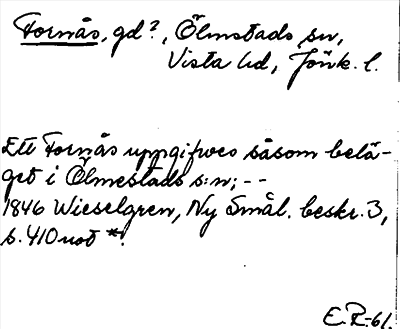 Fornås, gd?, Ölmstads sn,
Vista hd, Jönk. l.
Ett Fornås uppgifves såsom belä-
get i Ölmestads s:n; --
1846 Wieselgren, Ny Smål. beskr. 3,
s. 410 not *.
E.R-61.